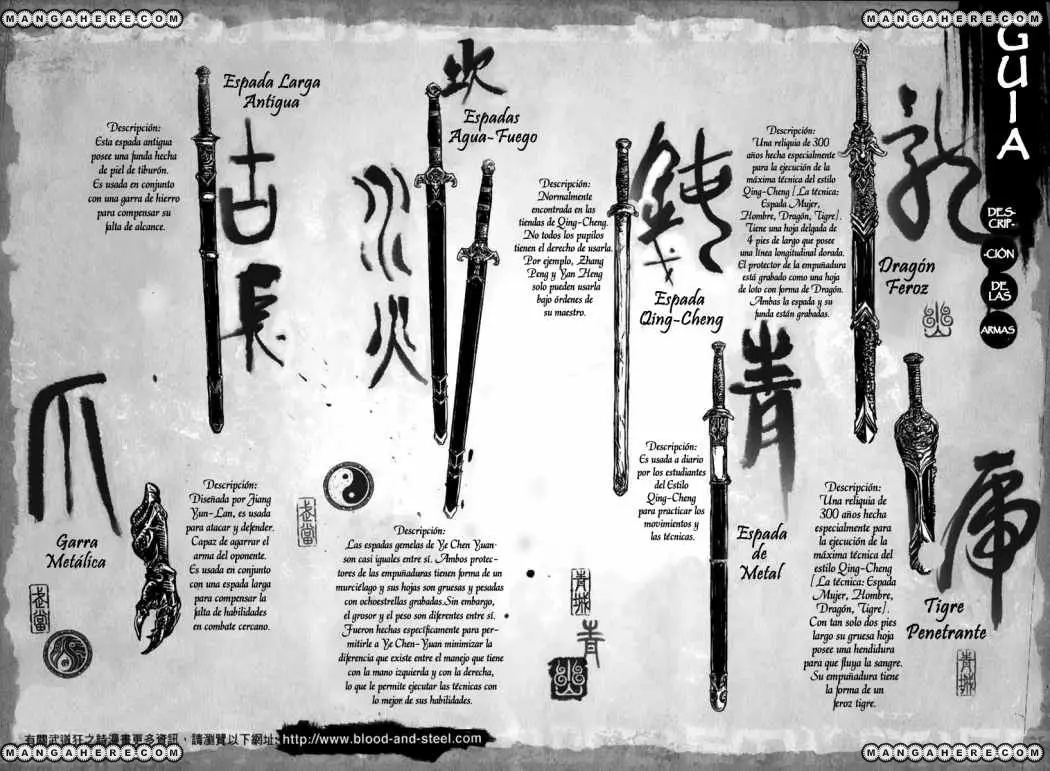 MANGAHERE.COM
MANGAHERE.COM
GUIA
DES-
CRIP-
-CIÓN
DE
LAS
ARMAS
Espada Larga
Antigua
Descripción:
Esta espada antigua
posee una funda hecha
de piel de tiburón.
Es usada en conjunto
con una garra de hierro
para compensar su
falta de alcance.
古
長
Espadas
Agua-Fuego
水
火
Descripción:
Las espadas gemelas de Ye Chen Yuan
son casi iguales entre sí. Ambos protec-
tores de las empuñaduras tienen forma de un
murciélago y sus hojas son gruesas y pesadas
con ochoestrellas grabadas.Sin embargo,
el grosor y el peso son diferentes entre sí.
Fueron hechas específicamente para per-
mitirle a Ye Chen-Yuan minimizar la
diferencia que existe entre el manejo que tiene
con la mano izquierda y con la derecha,
lo que le permite ejecutar las técnicas con
lo mejor de sus habilidades.
Descripción:
Normalmente
encontrada en las
tiendas de Qing-Cheng.
No todos los pupilos
tienen el derecho de usarla.
Por ejemplo, Zhang
Peng y Yan Heng
solo pueden usarla
bajo órdenes de
su maestro.
Espada
Qing-Cheng
鈍
Descripción:
Una reliquia de 300
años hecha especialmente
para la ejecución de la
máxima técnica del estilo
Qing-Cheng [La técnica:
Espada Mujer,
Hombre, Dragón, Tigre].
Tiene una hoja delgada de
4 pies de largo que posee
una línea longitudinal dorada.
El protector de la empuñadura
está grabado como una hoja
de loto con forma de Dragón.
Ambas la espada y su
funda están grabadas.
Dragón
Feroz
龍
爪
Garra
Metálica
Descripción:
Diseñada por Jiang
Yun-Lan, es usada
para atacar y defender.
Capaz de agarrar el
arma del oponente.
Es usada en conjunto
con una espada larga
para compensar la
falta de habilidades
en combate cercano.
武當
武當
Descripción:
Es usada a diario
por los estudiantes
del Estilo
Qing-Cheng
para practicar los
movimientos y
las técnicas.
青
Espada
de
Metal
青城
青
Descripción:
Una reliquia de
300 años hecha
especialmente para
la ejecución de la
máxima técnica del
estilo Qing-Cheng
[La técnica: Espada
Mujer, Hombre,
Dragón, Tigre].
Con tan solo dos pies
largo su gruesa hoja
posee una hendidura
para que fluya la sangre.
Su empuñadura tiene
la forma de un
feroz tigre.
虎
Tigre
Penetrante
青城
有關武道狂之詩漫畫更多資訊，請瀏覽以下網址: http://www.blood-and-steel.com
MANGAHERE.COM
MANGAHERE.COM